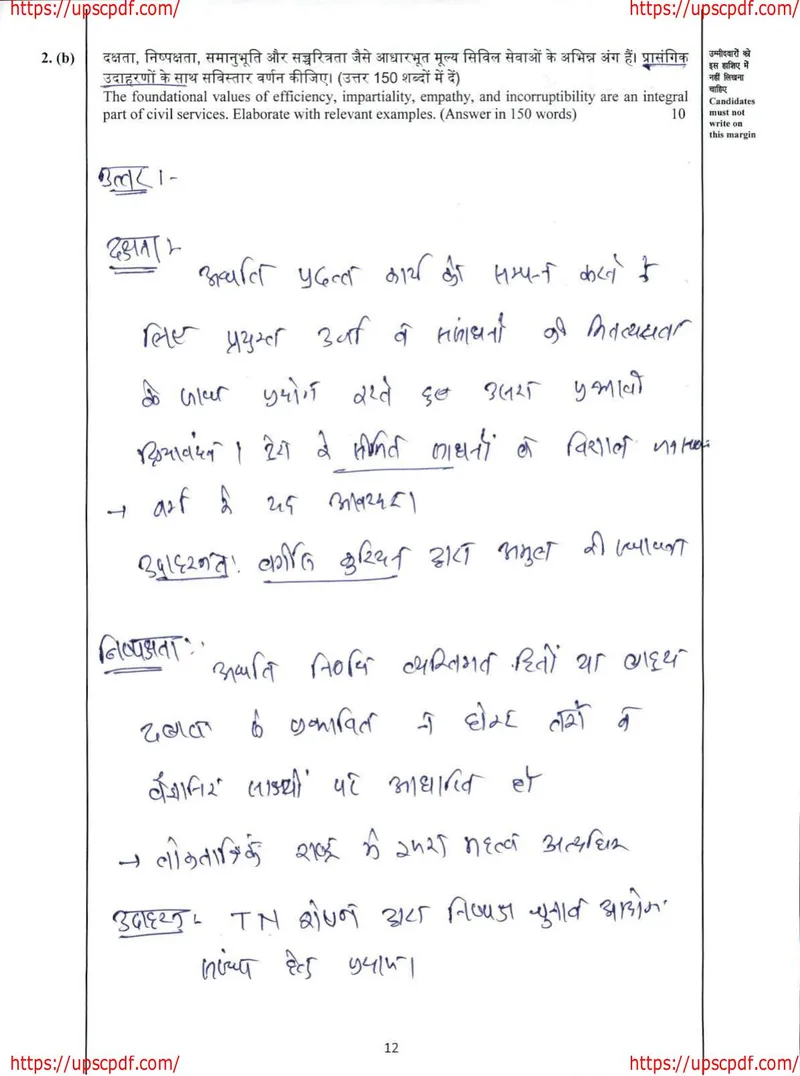 https://upscpdf.com/ https://upscpdf.com/
2. (b) दक्षता, निष्पक्षता, समानुभूति और सच्चरित्रता जैसे आधारभूत मूल्य सिविल सेवाओं के अभिन्न अंग हैं। प्रासंगिक
उदाहरणों के साथ सविस्तार वर्णन कीजिए। (उत्तर 150 शब्दों में दें)
The foundational values of efficiency, impartiality, empathy, and incorruptibility are an integral
part of civil services. Elaborate with relevant examples. (Answer in 150 words) 10
उम्मीदवारों को
इस हाशिए में
नहीं लिखना
चाहिए
Candidates
must not
write on
this margin
उत्तर :-
दक्षता :-
अर्थात प्रदत्त कार्य को सम्पन्न करने के
लिए प्रयुक्त उर्जा व संसाधनों की मितव्ययता
के साथ प्रयोग करते हुए उसका प्रभावी
क्रियान्वयन । देश के सीमित साधनों व विशाल
→ वर्ग में यह आवश्यक।
उदाहरणतः वर्गीज कुरियन द्वारा अमूल की स्थापना
निष्पक्षता :-
अर्थात निर्णय व्यक्तिगत हितों या बाह्य
दबाव से प्रभावित न होकर तर्कों व
वैज्ञानिक साक्ष्यों पर आधारित हो
→ लोकतांत्रिक राष्ट्र में इसका महत्व अत्यधिक
उदाहरण - TN शेषन द्वारा निष्पक्ष चुनाव आयोग
हेतु प्रयास।
12
https://upscpdf.com/ https://upscpdf.com/